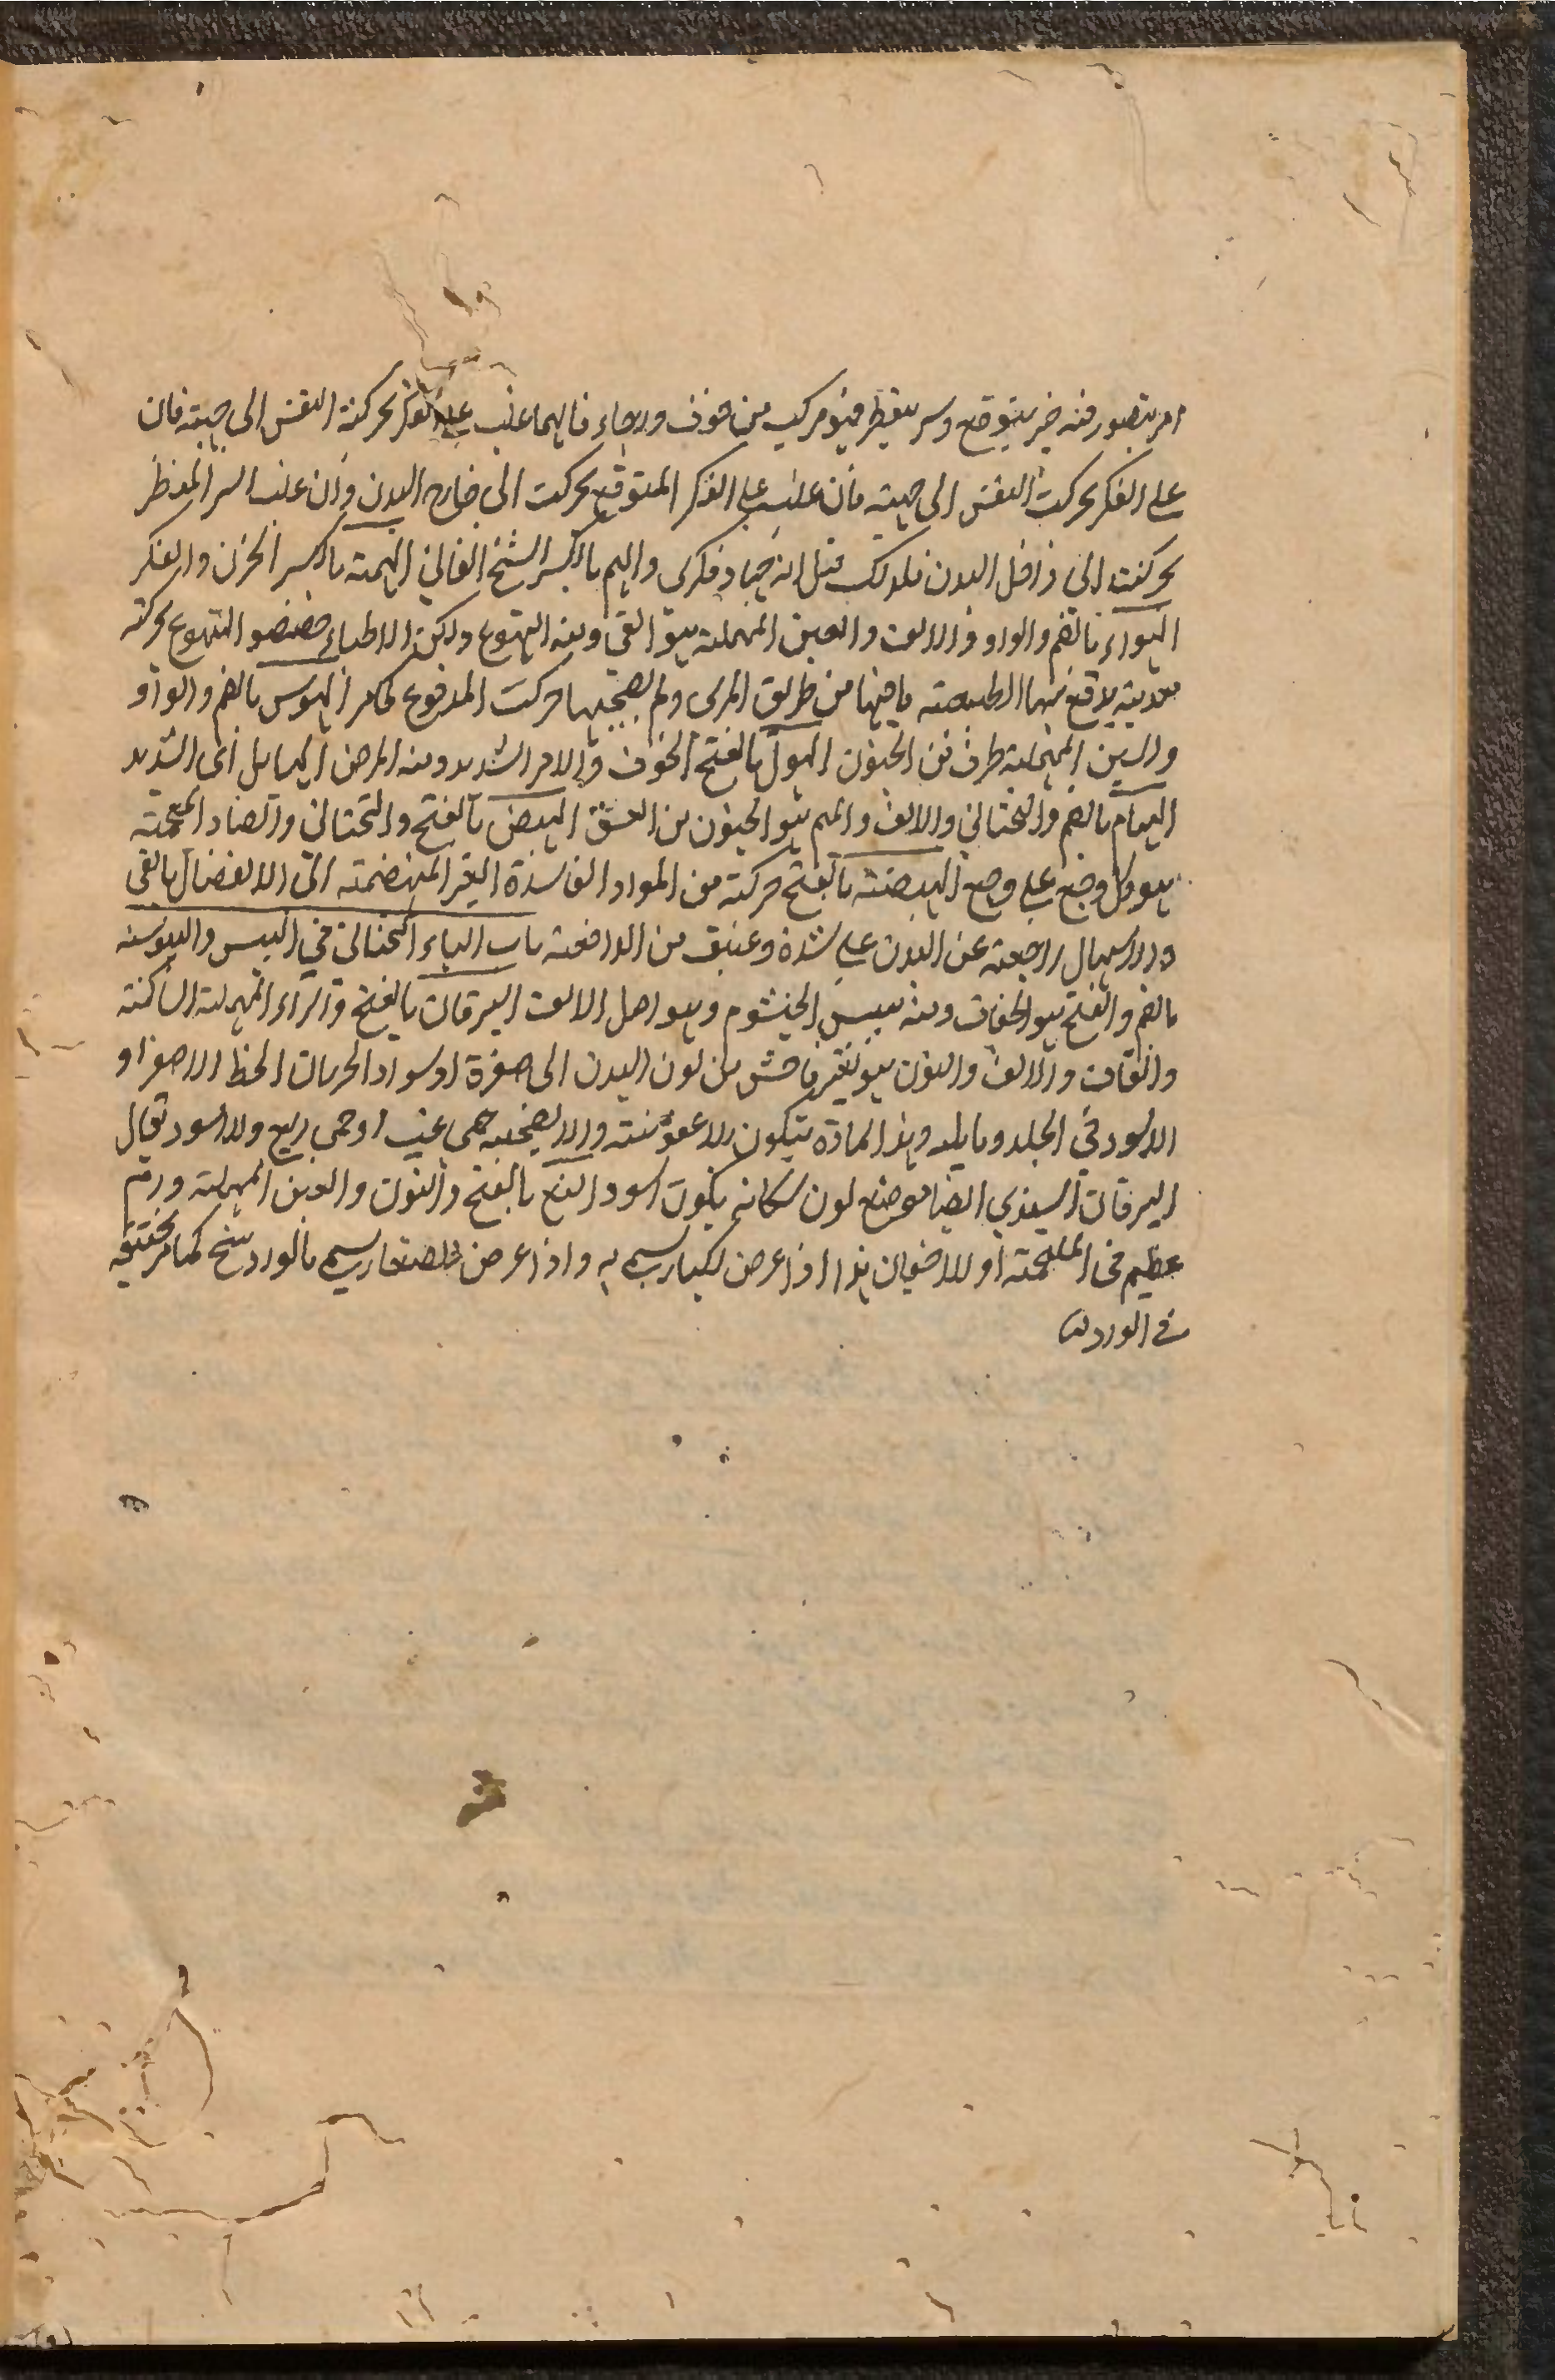 امر يتصور فيه خير يتوقع وشر ينتظر فهو مركب من خوف ورجاء فايهما غلب على الفكر تحركت النفس الى جهته فان
على الفكر تحركت النفس الى جهته فان غلب على الفكر المتوقع تحركت الى خارج البدن وان غلب الشر المنتظر
تحركت الى داخل البدن فلذلك قيل انه جهاد فكرى والهم بالكسر الشيخ الفانى الهمة بالكسر الحزن والفكر
الهواع بالضم والواو والالف والعين المهملة هو القى ومنه التهوع ولكن الاطباء خصصوا التهوع بحركة
معدية يدفع بها الطبيعة ما فيها من طريق المرى ولم يصحبها حركت المدفوع كما مر الهوس بالضم والواو
والسين المهملة طرف من الجنون الهول بالفتح الخوف والامر الشديد ومنه المرض الهايل أى الشديد
الهيام بالضم والتحتانى والالف والميم هو الجنون من العشق الهيض بالفتح والتحتانى والضاد المعجمة
هو كل وجع على وجع الهيضة بالفتح حركة من المواد الفاسدة الغير المنهضمة الى الانفصال بالقى
والاسهال راجعة عن البدن على شدة وعنف من الدافعة باب الياء التحتانى فى اليبس واليبوسة
بالضم والفتح هو الجفاف ومنه يبس الخيشوم وهو اصل الانف اليرقان بالفتح والراء المهملة الساكنة
والقاف والالف والنون هو تغير فاحش من لون البدن الى صفرة او سواد لجريان الخلط الاصفر او
الاسود فى الجلد وما يليه وهذا المادة يتكون بلا عفونة والا لصحبه حمى غب او حمى ربع والاسود يقال
اليرقان السندي ايضا موضع لون سكانه يكون اسود الينع بالفتح والنون والعين المهملة ورم
عظيم فى الملتحمة او للاجفان هذا اذا عرض لكبار يسمى به واذا عرض للصغار يسمى بالوردينج كما مر تحقيقه
فى الورد